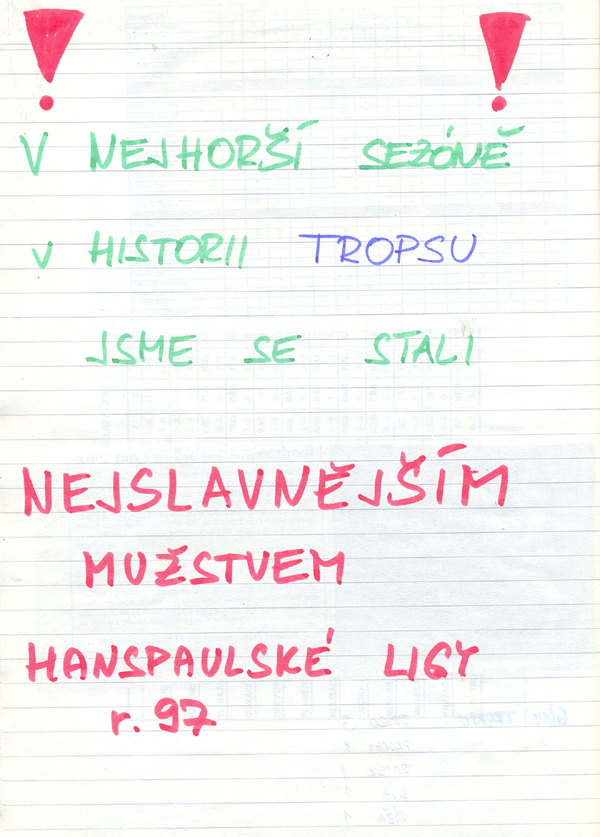 ! !
V NEJHORŠÍ SEZÓNĚ
V HISTORII TROPSU
JSME SE STALI
NEJSLAVNĚJŠÍM
MUŽSTVEM
HANSPAULSKÉ LIGY
r. 97